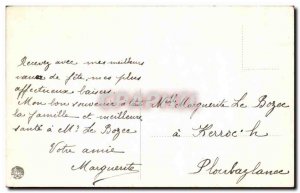 Recevez avec mes meilleurs
vœux de fête, mes plus
affectueux baisers.
Mon bon souvenir à toute
la famille et meilleure
santé à Mr Le Bozec
Votre amie
Marguerite
Melle Marguerite Le Bozec
à Kerroc'h
Ploubazlanec